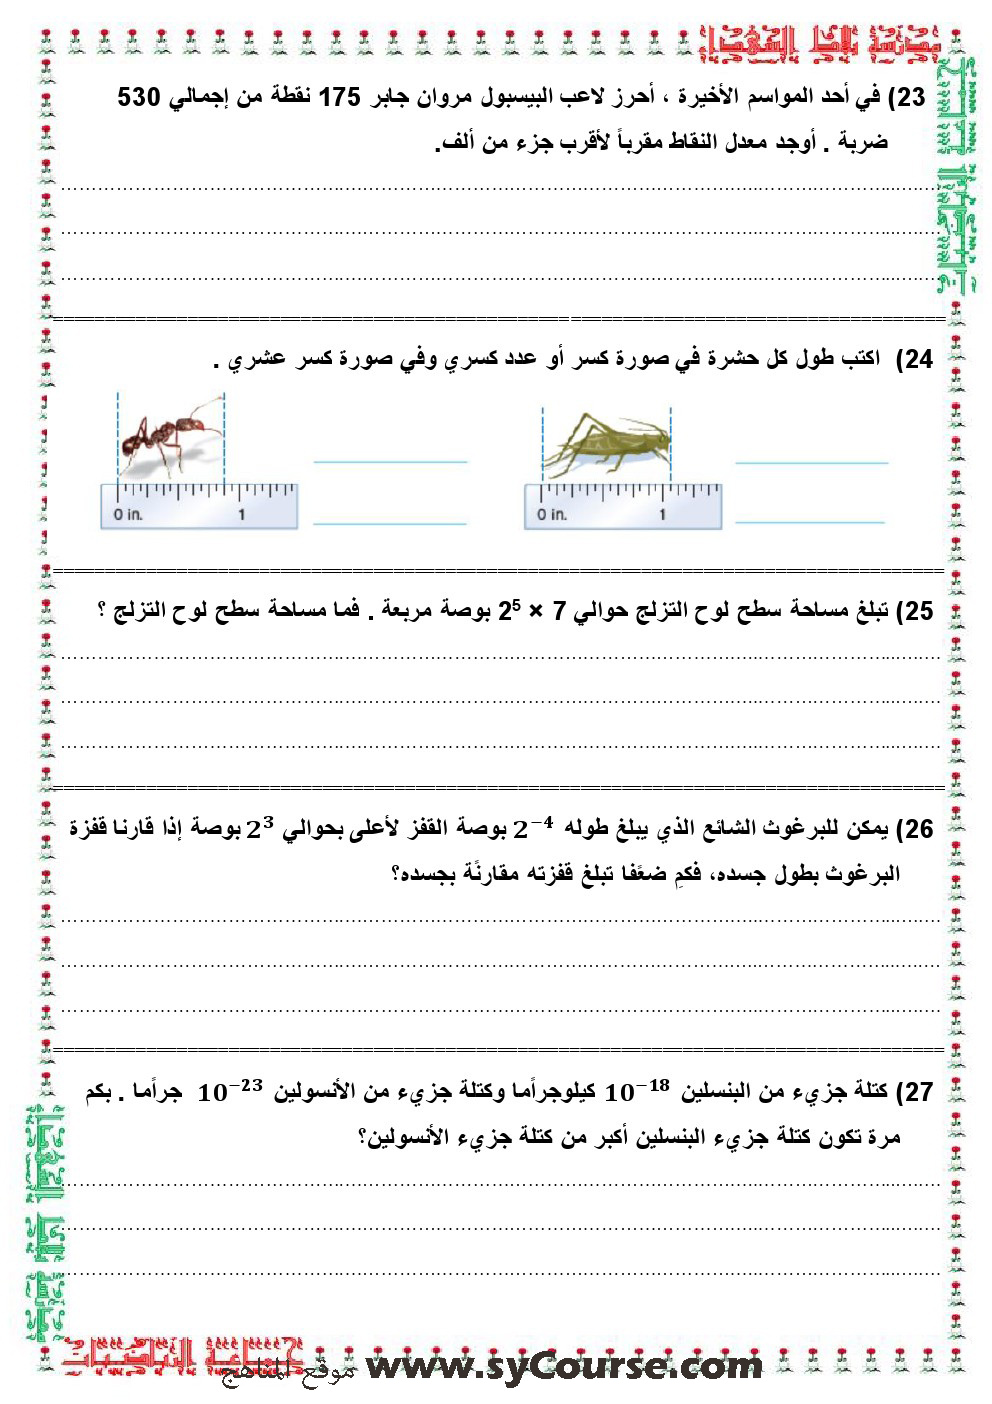 مدرسة بلاط الشهداء
23) في أحد المواسم الأخيرة ، أحرز لاعب البيسبول مروان جابر 175 نقطة من إجمالي 530
ضربة . أوجد معدل النقاط مقرباً لأقرب جزء من ألف.
24) اكتب طول كل حشرة في صورة كسر أو عدد كسري وفي صورة كسر عشري .
0 in. 1
0 in. 1
25) تبلغ مساحة سطح لوح التزلج حوالي 7 × 2⁵ بوصة مربعة . فما مساحة سطح لوح التزلج ؟
26) يمكن للبرغوث الشائع الذي يبلغ طوله 2⁻⁴ بوصة القفز لأعلى بحوالي 2³ بوصة إذا قارنا قفزة
البرغوث بطول جسده، فكمِ ضعًفا تبلغ قفزته مقارنًة بجسده؟
27) كتلة جزيء من البنسلين 10⁻¹⁸ كيلوجراًما وكتلة جزيء من الأنسولين 10⁻²³ جراًما . بكم
مرة تكون كتلة جزيء البنسلين أكبر من كتلة جزيء الأنسولين؟
جماعة الرياضيات
موقع المناهج www.syCourse.com